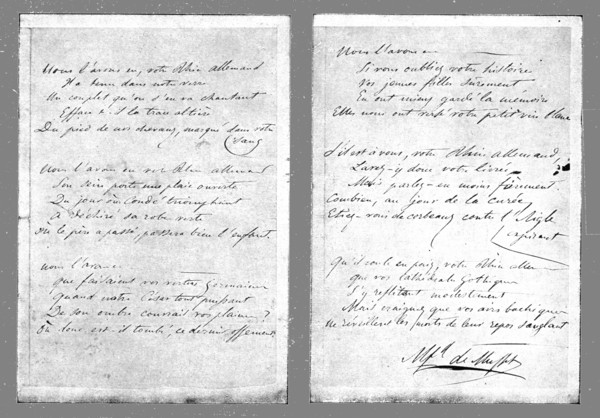 Nous l'avons eu, votre Rhin allemand
Il a tenu dans notre verre
Un couplet qu'on s'en va chantant
Efface-t-il la trace altière
Du pied de nos chevaux, marqué dans votre
sang
Nous l'avons eu, votre Rhin allemand
Son sein porte une plaie ouverte
Du jour où Condé triomphant
a déchiré sa robe verte
Où le père a passé, passera bien l'enfant.
Nous l'avons
que faisaient vos vertus Germaines
Quand notre César tout puissant
De son ombre couvrait vos plaines ?
Où donc est-il tombé, ce dernier ossement
Nous l'avons
Si vous oubliez votre histoire
Vos jeunes filles sûrement
En ont mieux gardé la mémoire
Elles nous ont versé votre petit vin blanc
S'il est à vous, votre Rhin allemand,
Lavez-y donc votre livrée
Mais parlez-en moins fièrement.
Combien, au jour de la curée
Etiez-vous de corbeaux contre l'Aigle
expirant
Qu'il coule en paix, votre Rhin allem
que vos cathédrales Gothiques
S'y reflètent modestement
Mais craignez que vos airs bachiques
ne réveillent les morts de leur repos sanglant
Alf. de Musset